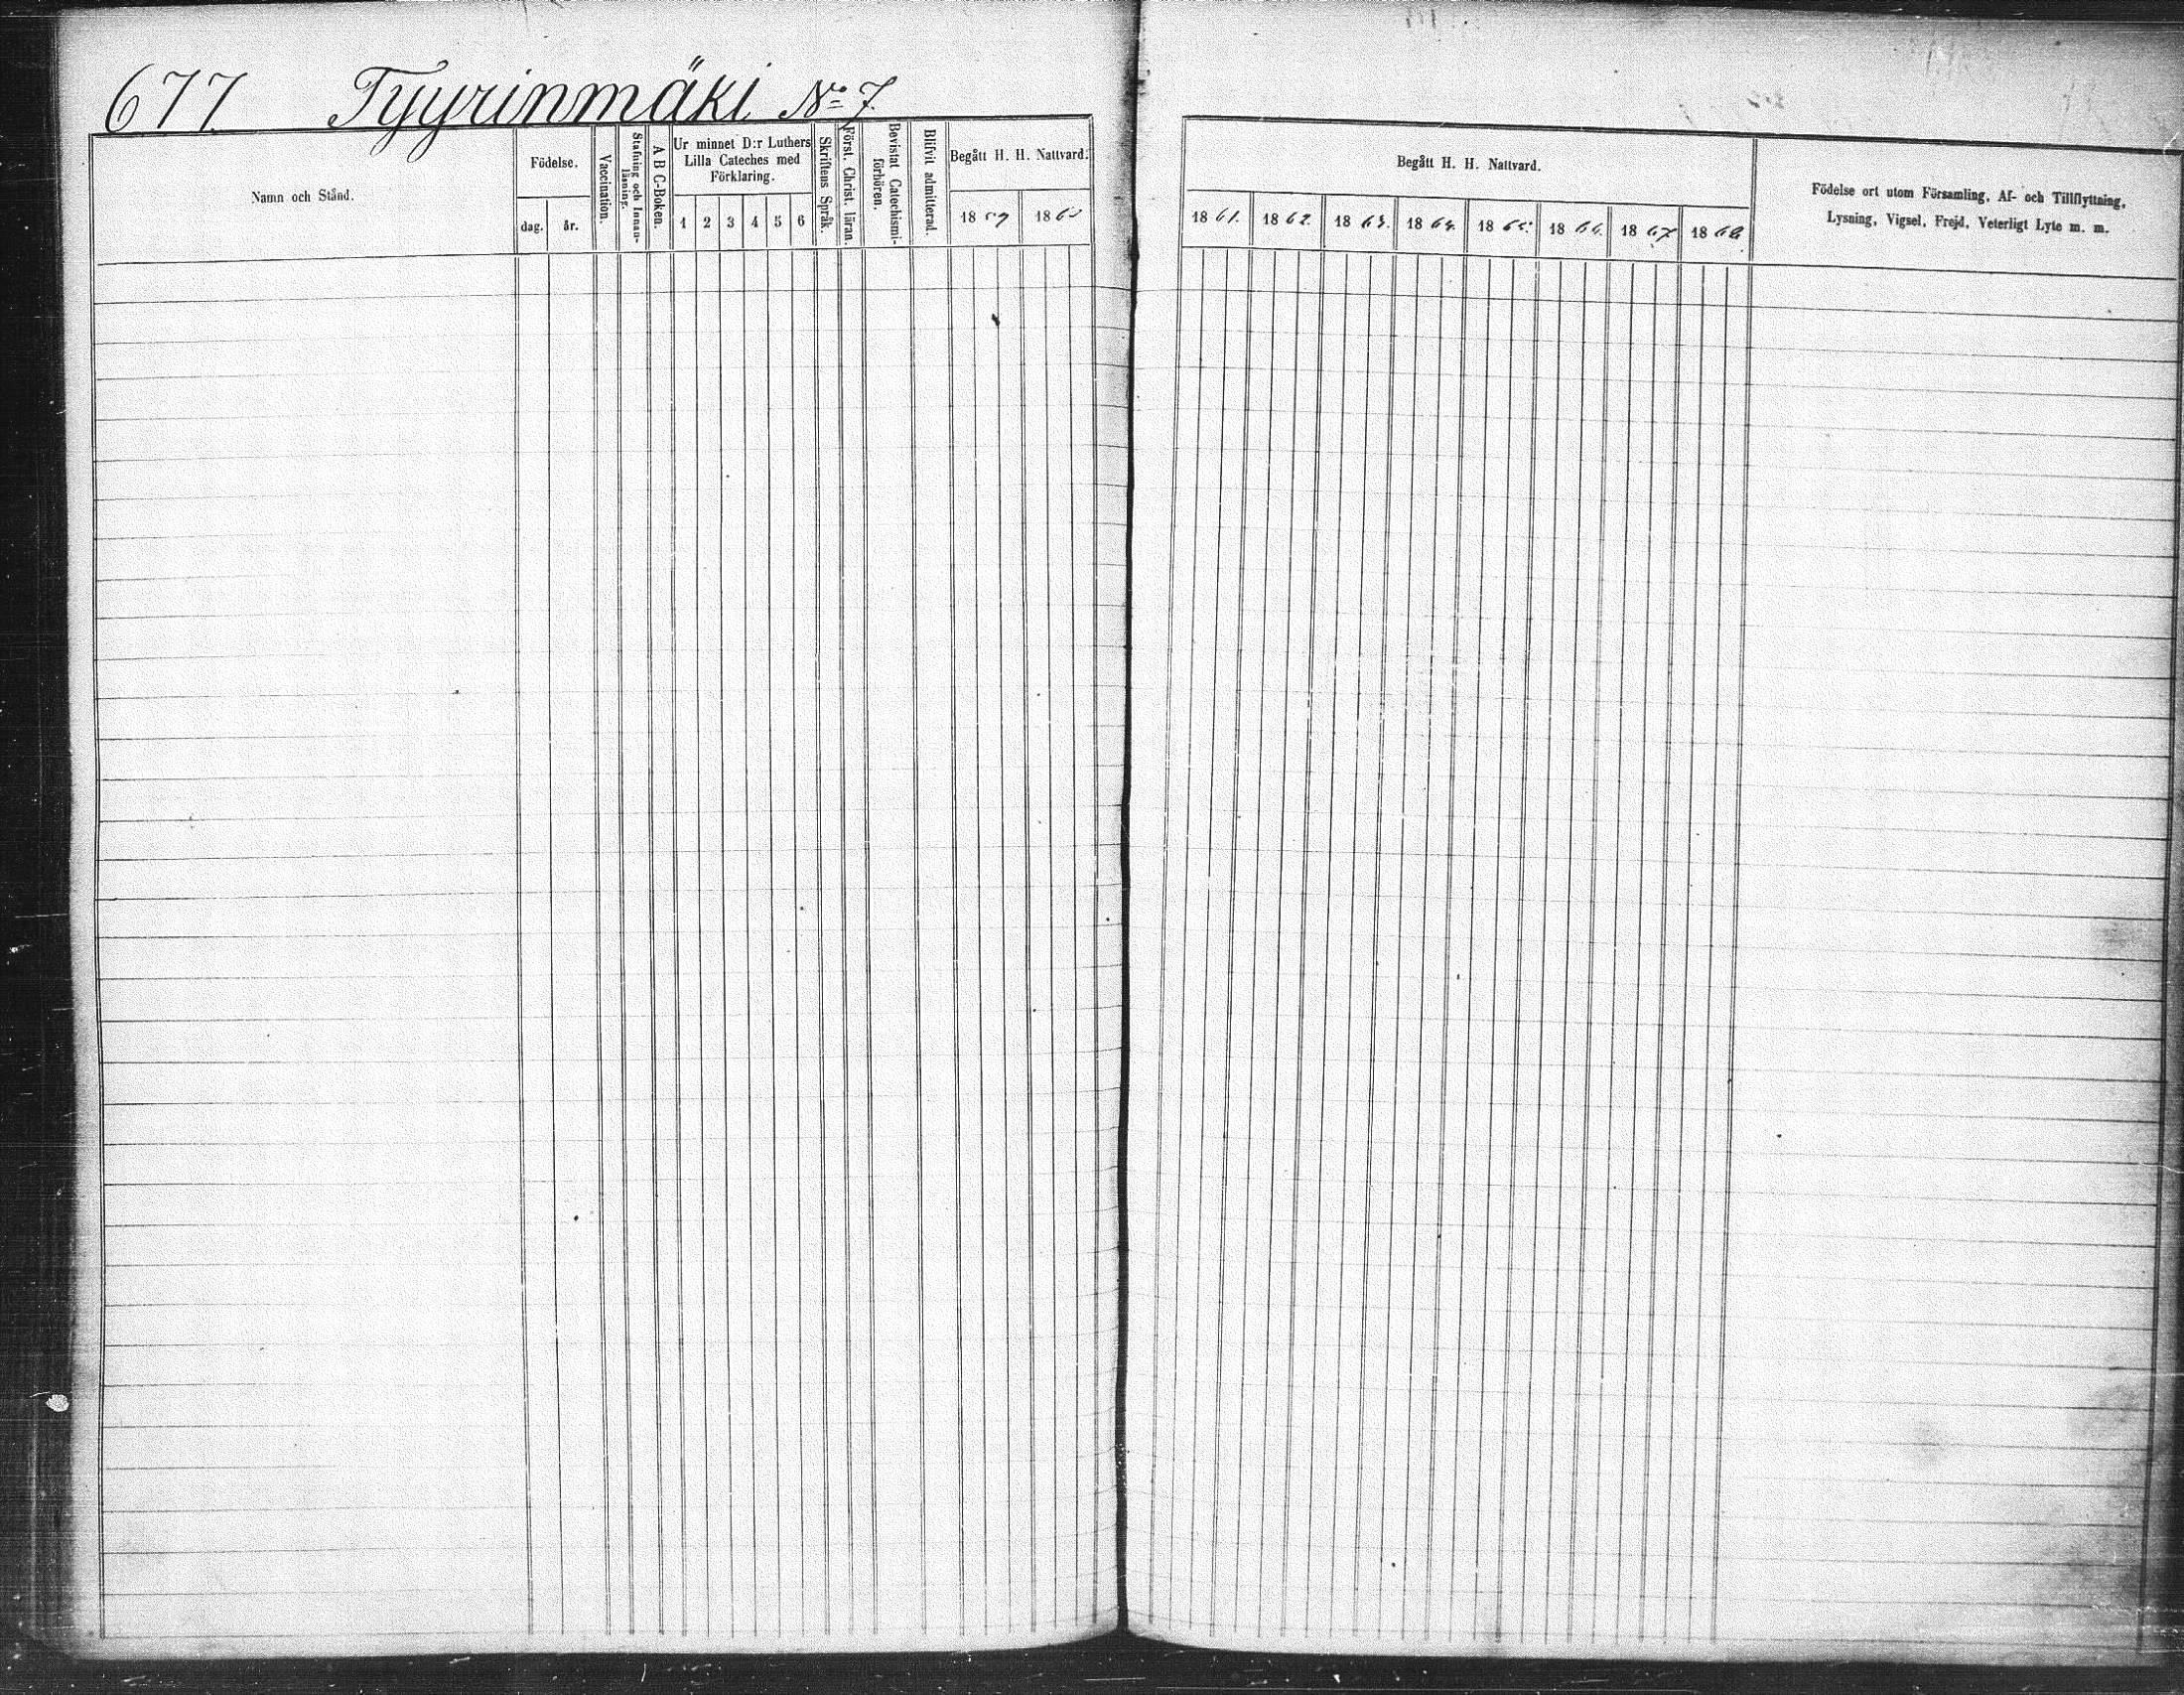 677. Tyyrinmäki No 7.
Namn och Stånd.
Födelse.
dag.
år.
Vaccination.
Stafning och Innan-
läsning.
A B C-Boken.
Ur minnet D:r Luthers
Lilla Cateches med
Förklaring.
1 2 3 4 5 6
Skriftens Språk.
Först. Christ. läran.
Bevistat Catechismi-
förhören.
Blifvit admitterad.
Begått H. H. Nattvard.
1859 1860
Begått H. H. Nattvard.
1861. 1862. 1863. 1864. 1865. 1866. 1867. 1868.
Födelse ort utom Församling, Af- och Tillflyttning,
Lysning, Vigsel, Frejd, Veterligt Lyte m. m.